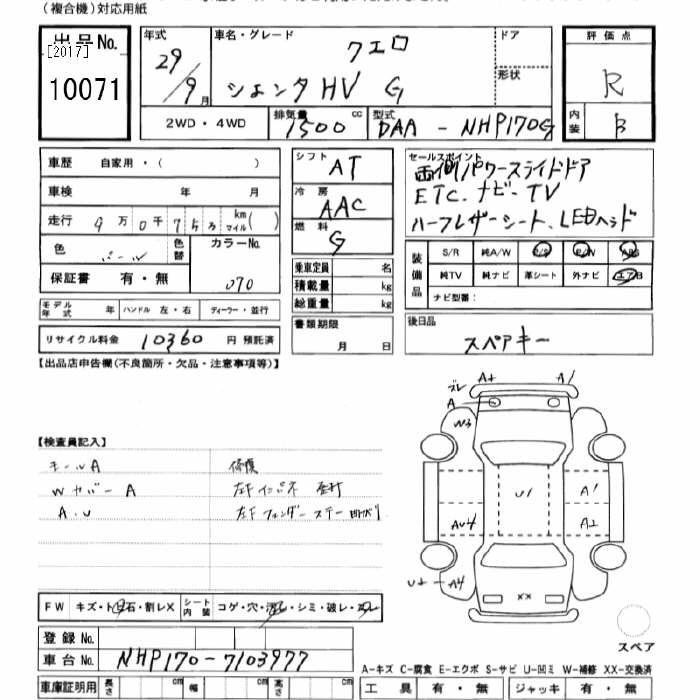 (複合機)対応用紙
出品No.
[2017]
10071
年式
29/9月
車名・グレード
クエロ
シエンタHV G
ドア
形状
評価点
R
内装
B
2WD・4WD
排気量
1500 cc
型式
DAA-NHP170G
車歴 自家用・( )
車検 年 月
走行 9万0千7百 km マイル( )
色 パール
色替
カラーNo.
070
保証書 有・無
モデル年式 年 ハンドル 左・右 ディーラー・並行
リサイクル料金 10360 円 預託済
シフト AT
冷房 AAC
燃料 G
乗車定員 名
積載量 kg
総重量 kg
書類期限
月 日
セールスポイント
両側パワースライドドア
ETC.ナビ-TV
ハーフレザーシート、LEDヘッド
装備品
S/R 純A/W P/S P/W ABS
純TV 純ナビ 革シート 外ナビ エアB
ナビ型番:
後日品
スペアキー
【出品店申告欄(不良箇所・欠品・注意事項等)】
【検査員記入】
モールA
Wカバー A
A.U
修復
FW キズ・ト石・割レX シート内装 コゲ・穴・・シミ・破レ・スレ
登録No.
車台No. NHP170-7103977
車庫証明用 長さ cm 幅 cm 高さ cm
ズレ
A+
A'
A
W3
U1
A'
AU4
A2
U+
A4
XX
スペア
A-キズ C-腐食 E-エクボ S-サビ U-凹ミ W-補修 XX-交換済
工具 有・無 ジャッキ 有・無